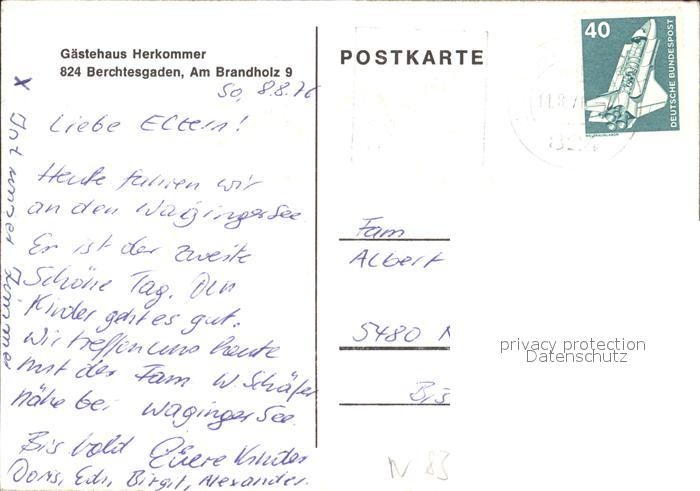 Gästehaus Herkommer
824 Berchtesgaden, Am Brandholz 9
So, 8.8.76
Liebe Eltern!
Heute fahren wir
an den Waginger See.
Er ist der zweite
Schöne Tag. Den
Kinder geht es gut.
Wir treffen uns heute
mit der Fam W Schäfer
nähe bei Waginger See.
Bis bald Euere Kinder
Doris, Edi, Birgit, Alexander.
x Ist unser Zimmer
POSTKARTE
40
DEUTSCHE BUNDESPOST
Fam
Albert
5480
privacy protection
Datenschutz
Bis
N 83